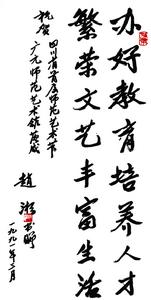 办好教育培养人才
繁荣文艺丰富生活
祝贺
四川省首届师范艺术节
广元师范艺术馆落成
赵
一九九一年三月